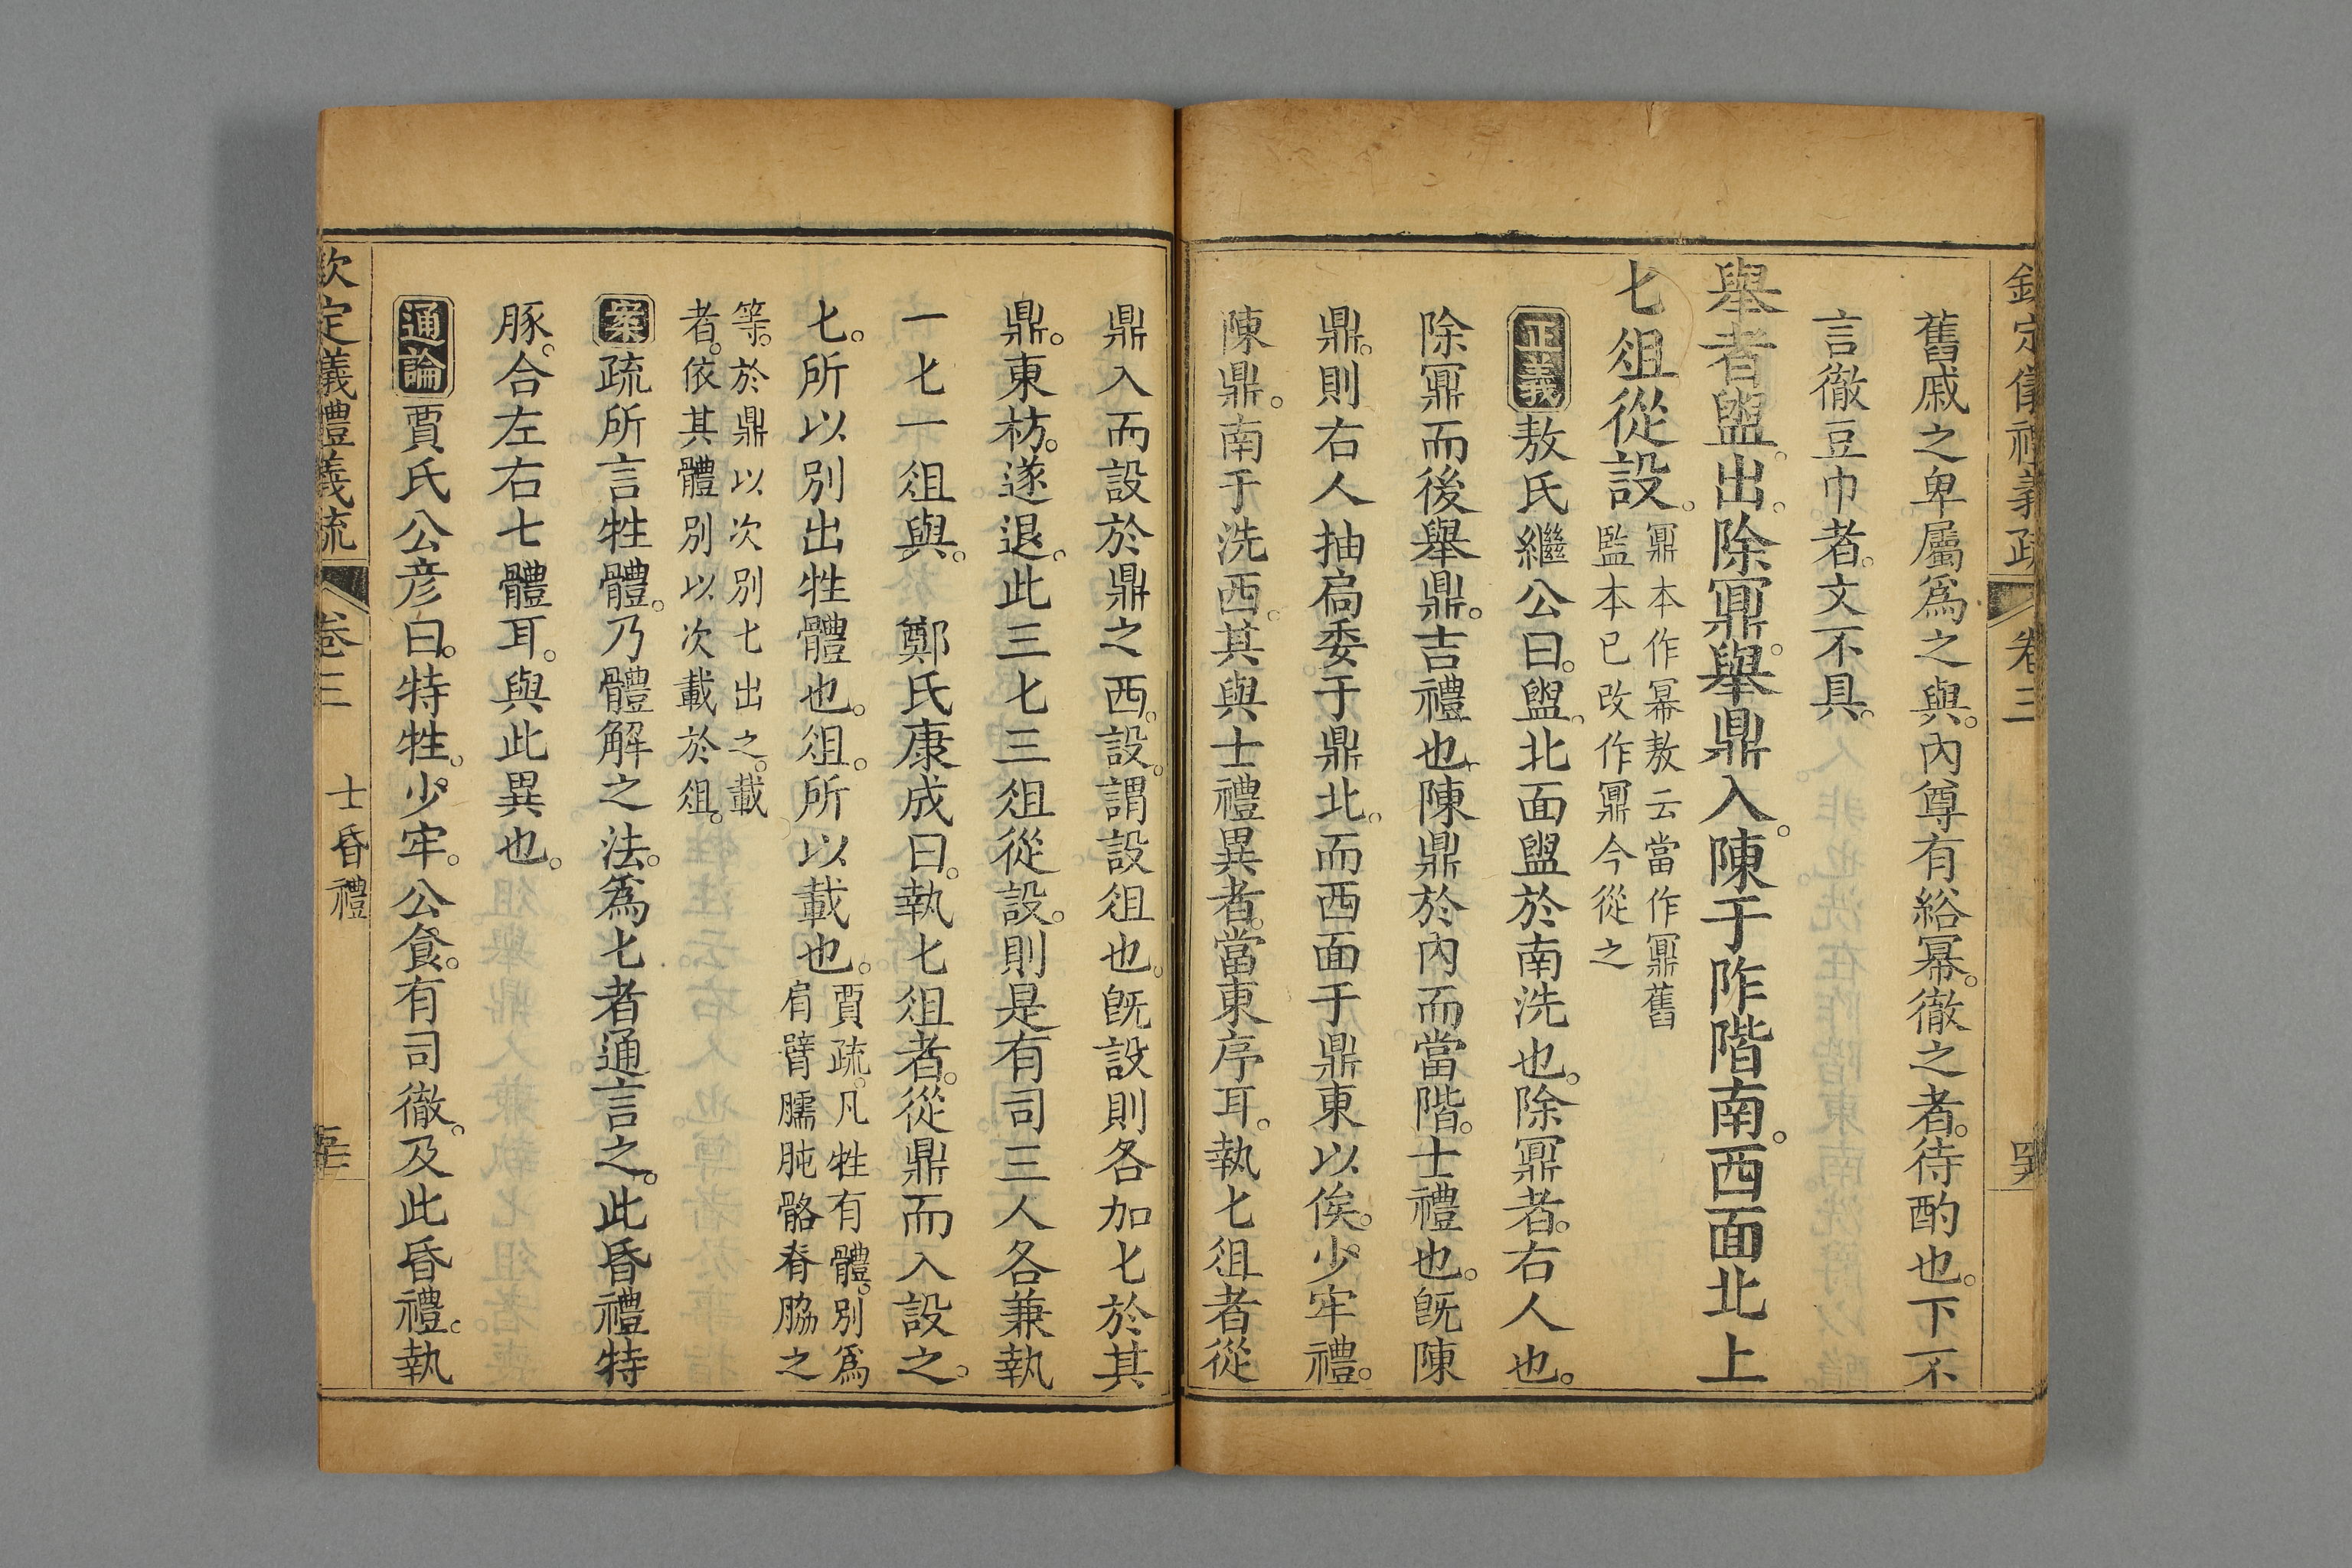 欽定儀禮義疏 卷三
舊戚之卑屬爲之與。內尊有綌冪。徹之者。待酌也。下不
言徹豆巾者。文不具。
舉者盥。出。除鼏。舉鼎入。陳于阼階南。西面北上
匕俎從設。
鼏本作冪敖云當作鼏舊
監本已改作鼏今從之
正義敖氏繼公曰。盥。北面盥於南洗也。除鼏者。右人也。
除鼏而後舉鼎。吉禮也。陳鼎於內而當階。士禮也。旣陳
鼎。則右人抽扃委于鼎北。而西面于鼎東以俟。少牢禮。
陳鼎。南于洗西。其與士禮異者。當東序耳。執匕俎者從
鼎入而設於鼎之西。設。謂設俎也。旣設則各加匕於其
鼎。東枋。遂退。此三匕三俎從設。則是有司三人各兼執
一匕一俎與。 鄭氏康成曰。執匕俎者。從鼎而入設之。
匕。所以別出牲體也。俎。所以載也。
賈疏。凡牲有體。別爲
肩臂臑肫骼脊脇之
等。於鼎以次別匕出之。載
者。依其體別以次載於俎。
案疏所言牲體。乃體解之法。爲匕者通言之。此昏禮特
豚。合左右七體耳。與此異也。
通論賈氏公彦曰。特牲。少牢。公食。有司徹。及此昏禮。執
欽定儀禮義疏 卷三 士昏禮